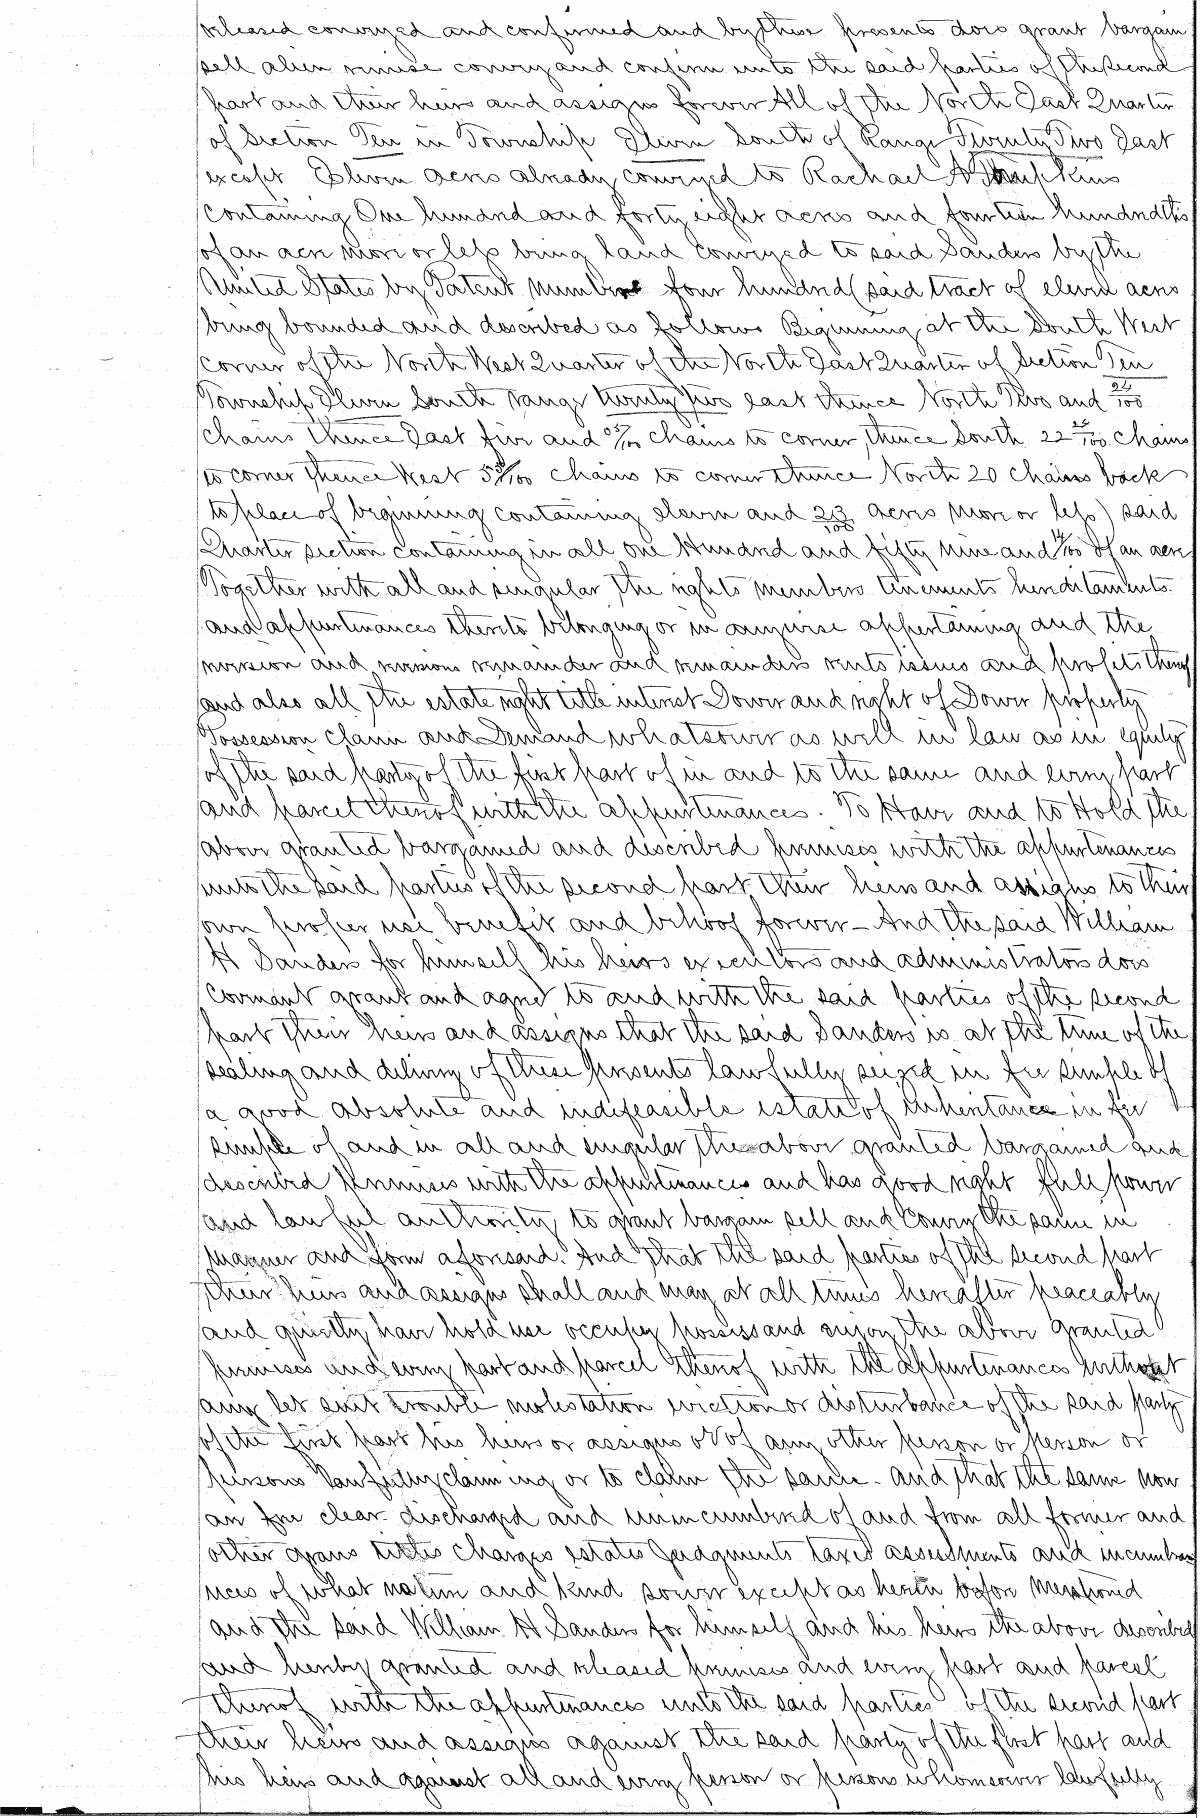 released conveyed and confirmed and by these presents does grant bargain
sell alien remise convey and confirm unto the said parties of the second
part and their heirs and assigns forever All of the North East Quarter
of Section Ten in Township Eleven South of Range Twenty Two East
except Eleven acres already conveyed to Rachael A
containing One hundred and forty eight acres and fourteen hundredths
of an acre more or less being land conveyed to said Sanders by the
United States by Patent Number four hundred (said tract of eleven acres
being bounded and described as follows Beginning at the South West
corner of the North West Quarter of the North East Quarter of Section Ten
Township Eleven South range twenty two east thence North Two and 24/100
chains thence East five and 05/100 chains to corner thence South 22 24/100 chains
to corner thence West 5 05/100 chains to corner thence North 20 chains back
to place of beginning containing eleven and 23/100 acres more or less) said
Quarter section containing in all one Hundred and fifty nine and 14/100 of an acre
Together with all and singular the rights members tenements hereditaments
and appurtenances thereto belonging or in anywise appertaining and the
reversion and reversions remainder and remainders rents issues and profits thereof
and also all the estate right title interest Dower and right of Dower property
Possession claim and Demand whatsoever as well in law as in equity
of the said party of the first part of in and to the same and every part
and parcel thereof with the appurtenances. To Have and to Hold the
above granted bargained and described premises with the appurtenances
unto the said parties of the second part their heirs and assigns to their
own proper use benefit and behoof forever – And the said William
H Sanders for himself his heirs executors and administrators does
covenant grant and agree to and with the said parties of the second
part their heirs and assigns that the said Sanders is at the time of the
sealing and delivery of these presents lawfully seized in fee simple of
a good absolute and indefeasible estate of inheritance in fee
simple of and in all and singular the above granted bargained and
described premises with the appurtenances and has good right full power
and lawful authority to grant bargain sell and Convey the same in
manner and form aforesaid. And that the said parties of the second part
their heirs and assigns shall and may at all times hereafter peaceably
and quietly have hold use occupy possess and enjoy the above granted
premises and every part and parcel thereof with the appurtenances without
any let suit trouble molestation eviction or disturbance of the said party
of the first part his heirs or assigns or of any other person or person or
persons lawfully claiming or to claim the same – and that the same now
are free clear discharged and unincumbered of and from all former and
other grans titles charges estates Judgments taxes assessments and incumbra
nces of what nature and kind soever except as herein before mentioned
and the said William H Sanders for himself and his heirs the above described
and hereby granted and released premises and every part and parcel
thereof with the appurtenances unto the said parties of the second part
their heirs and assigns against the said party of the first part and
his heirs and against all and every person or persons whomsoever lawfully